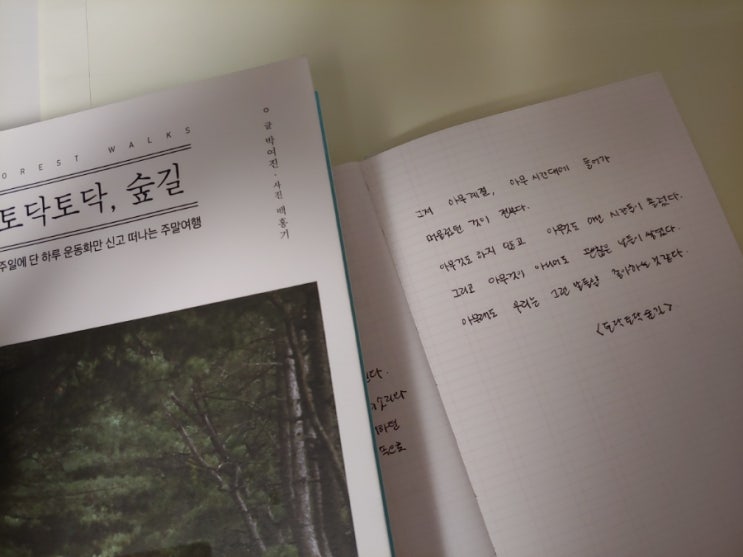 OREST WALKS
토닥토닥, 숲길
주일에 단 하루 운동화만 신고 떠나는 주말여행
글 박여진 · 사진 백홍기
그저 아무 계절, 아무 시간대에 들어가
머물렀던 것이 전부다.
아무것도 하지 않고 아무것도 아닌 시간들이 흘렀다.
그리고 아무것이 아니어도 괜찮은 날들이 쌓였다.
아무래도 우리는 그런 날들을 좋아하는 것 같다.
<토닥토닥 숲길>